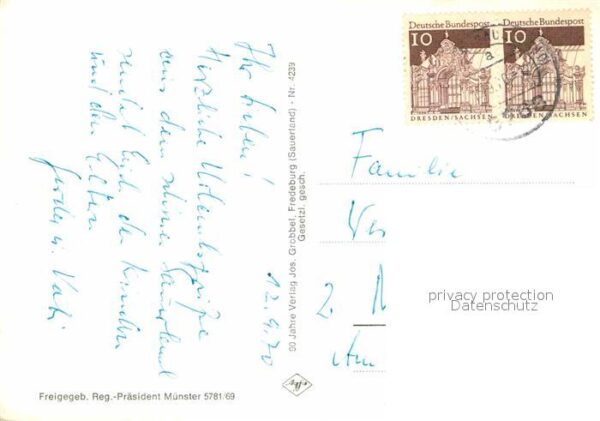 Deutsche Bundespost
10
DRESDEN/SACHSEN
Deutsche Bundespost
10
DRESDEN/SACHSEN
12.9.70
Ihr Lieben!
Herzliche Urlaubsgrüße
aus dem schönen Sauerland
sendet Euch, den Kindern
und den Eltern
90 Jahre Verlag Jos. Grobbel, Fredeburg (Sauerland) · Nr. 4239
Gesetzl. gesch.
Familie
2.
Am
privacy protection
Datenschutz
Freigegeb. Reg.-Präsident Münster 5781/69